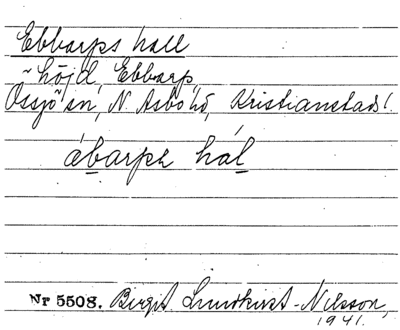 Ebbarps hall
höjd, Ebbarp,
Össjö sn, N. Åsbo hd, Kristianstads l.
ábarps hál
Nr 5508. Birgit Lundkvist-Nilsson,
1941.